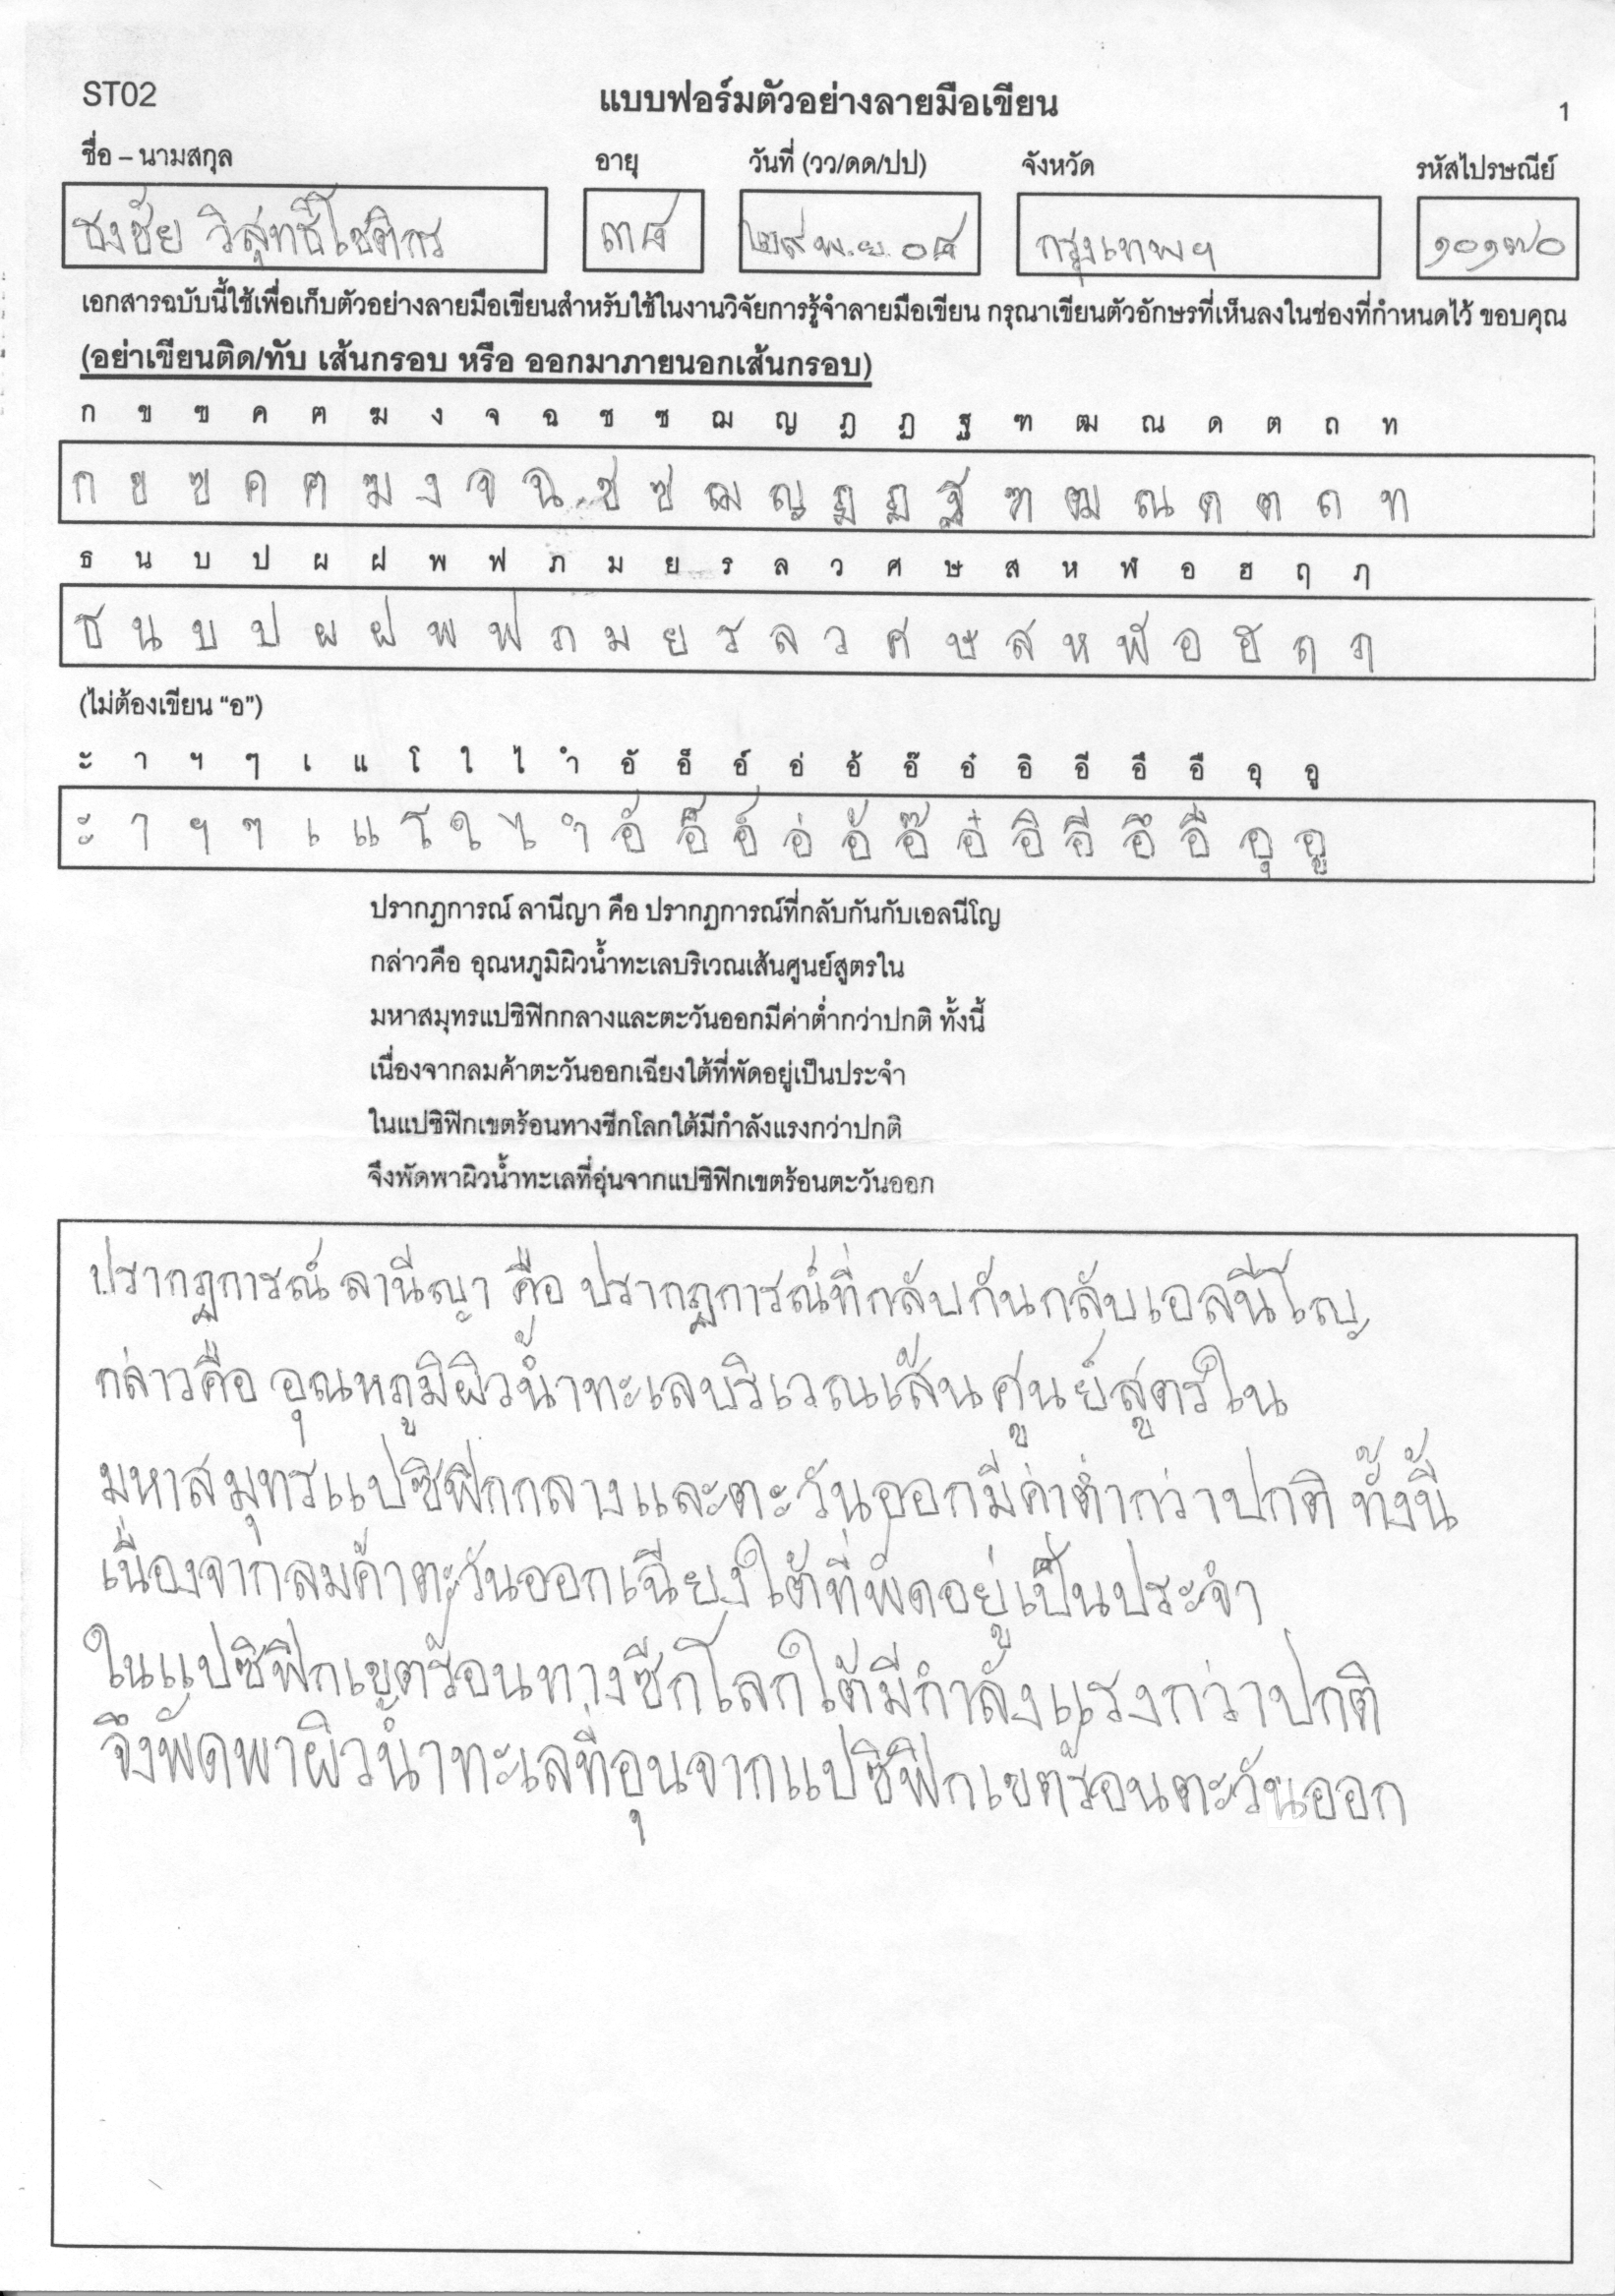 ST02
แบบฟอร์มตัวอย่างลายมือเขียน
1
ชื่อ – นามสกุล อายุ วันที่ (วว/ดด/ปป) จังหวัด รหัสไปรษณีย์
ธงชัย วิสุทธิ์โชติกร ๓๘ ๒๙ พ.ย. ๐๘ กรุงเทพฯ ๑๐๑๗๐
เอกสารฉบับนี้ใช้เพื่อเก็บตัวอย่างลายมือเขียนสำหรับใช้ในงานวิจัยการรู้จำลายมือเขียน กรุณาเขียนตัวอักษรที่เห็นลงในช่องที่กำหนดไว้ ขอบคุณ
(อย่าเขียนติด/ทับ เส้นกรอบ หรือ ออกมาภายนอกเส้นกรอบ)
ก ข ฃ ค ฅ ฆ ง จ ฉ ช ซ ฌ ญ ฎ ฏ ฐ ฑ ฒ ณ ด ต ถ ท
ก ข ฃ ค ฅ ฆ ง จ ฉ ช ซ ฌ ญ ฎ ฏ ฐ ฑ ฒ ณ ด ต ถ ท
ธ น บ ป ผ ฝ พ ฟ ภ ม ย ร ล ว ศ ษ ส ห ฬ อ ฮ ฤ ฦ
ธ น บ ป ผ ฝ พ ฟ ภ ม ย ร ล ว ศ ษ ส ห ฬ อ ฮ ฤ ฦ
(ไม่ต้องเขียน “อ”)
ะ า ฯ ๆ เ แ โ ใ ไ ำ อั อ็ อ์ อ่ อ้ อ๊ อ๋ อิ อี อึ อื อุ อู
ะ า ฯ ๆ เ แ โ ใ ไ ำ อั อ็ อ์ อ่ อ้ อ๊ อ๋ อิ อี อึ อื อุ อู
ปรากฏการณ์ ลานีญา คือ ปรากฏการณ์ที่กลับกันกับเอลนีโญ
กล่าวคือ อุณหภูมิผิวน้ำทะเลบริเวณเส้นศูนย์สูตรใน
มหาสมุทรแปซิฟิกกลางและตะวันออกมีค่าต่ำกว่าปกติ ทั้งนี้
เนื่องจากลมค้าตะวันออกเฉียงใต้ที่พัดอยู่เป็นประจำ
ในแปซิฟิกเขตร้อนทางซีกโลกใต้มีกำลังแรงกว่าปกติ
จึงพัดพาผิวน้ำทะเลที่อุ่นจากแปซิฟิกเขตร้อนตะวันออก
ปรากฏการณ์ ลานีญา คือ ปรากฏการณ์ที่กลับกันกลับเอลนีโญ
กล่าวคือ อุณหภูมิผิวน้ำทะเลบริเวณเส้นศูนย์สูตรใน
มหาสมุทรแปซิฟิกกลางและตะวันออกมีค่าต่ำกว่าปกติ ทั้งนี้
เนื่องจากลมค้าตะวันออกเฉียงใต้ที่พัดอยู่เป็นประจำ
ในแปซิฟิกเขตร้อนทางซีกโลกใต้มีกำลังแรงกว่าปกติ
จึงพัดพาผิวน้ำทะเลที่อุนจากแปซิฟิกเขตร้อนตะวันออก